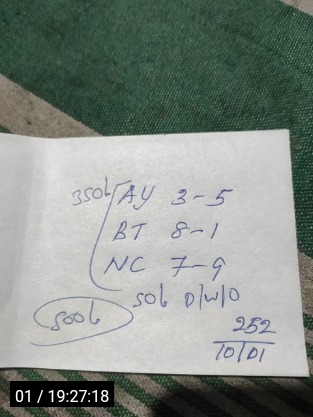 350L AY 3-5
BT 8-1
NC 7-9
50L D/W/O
500L
252
10/01
01 / 19:27:18